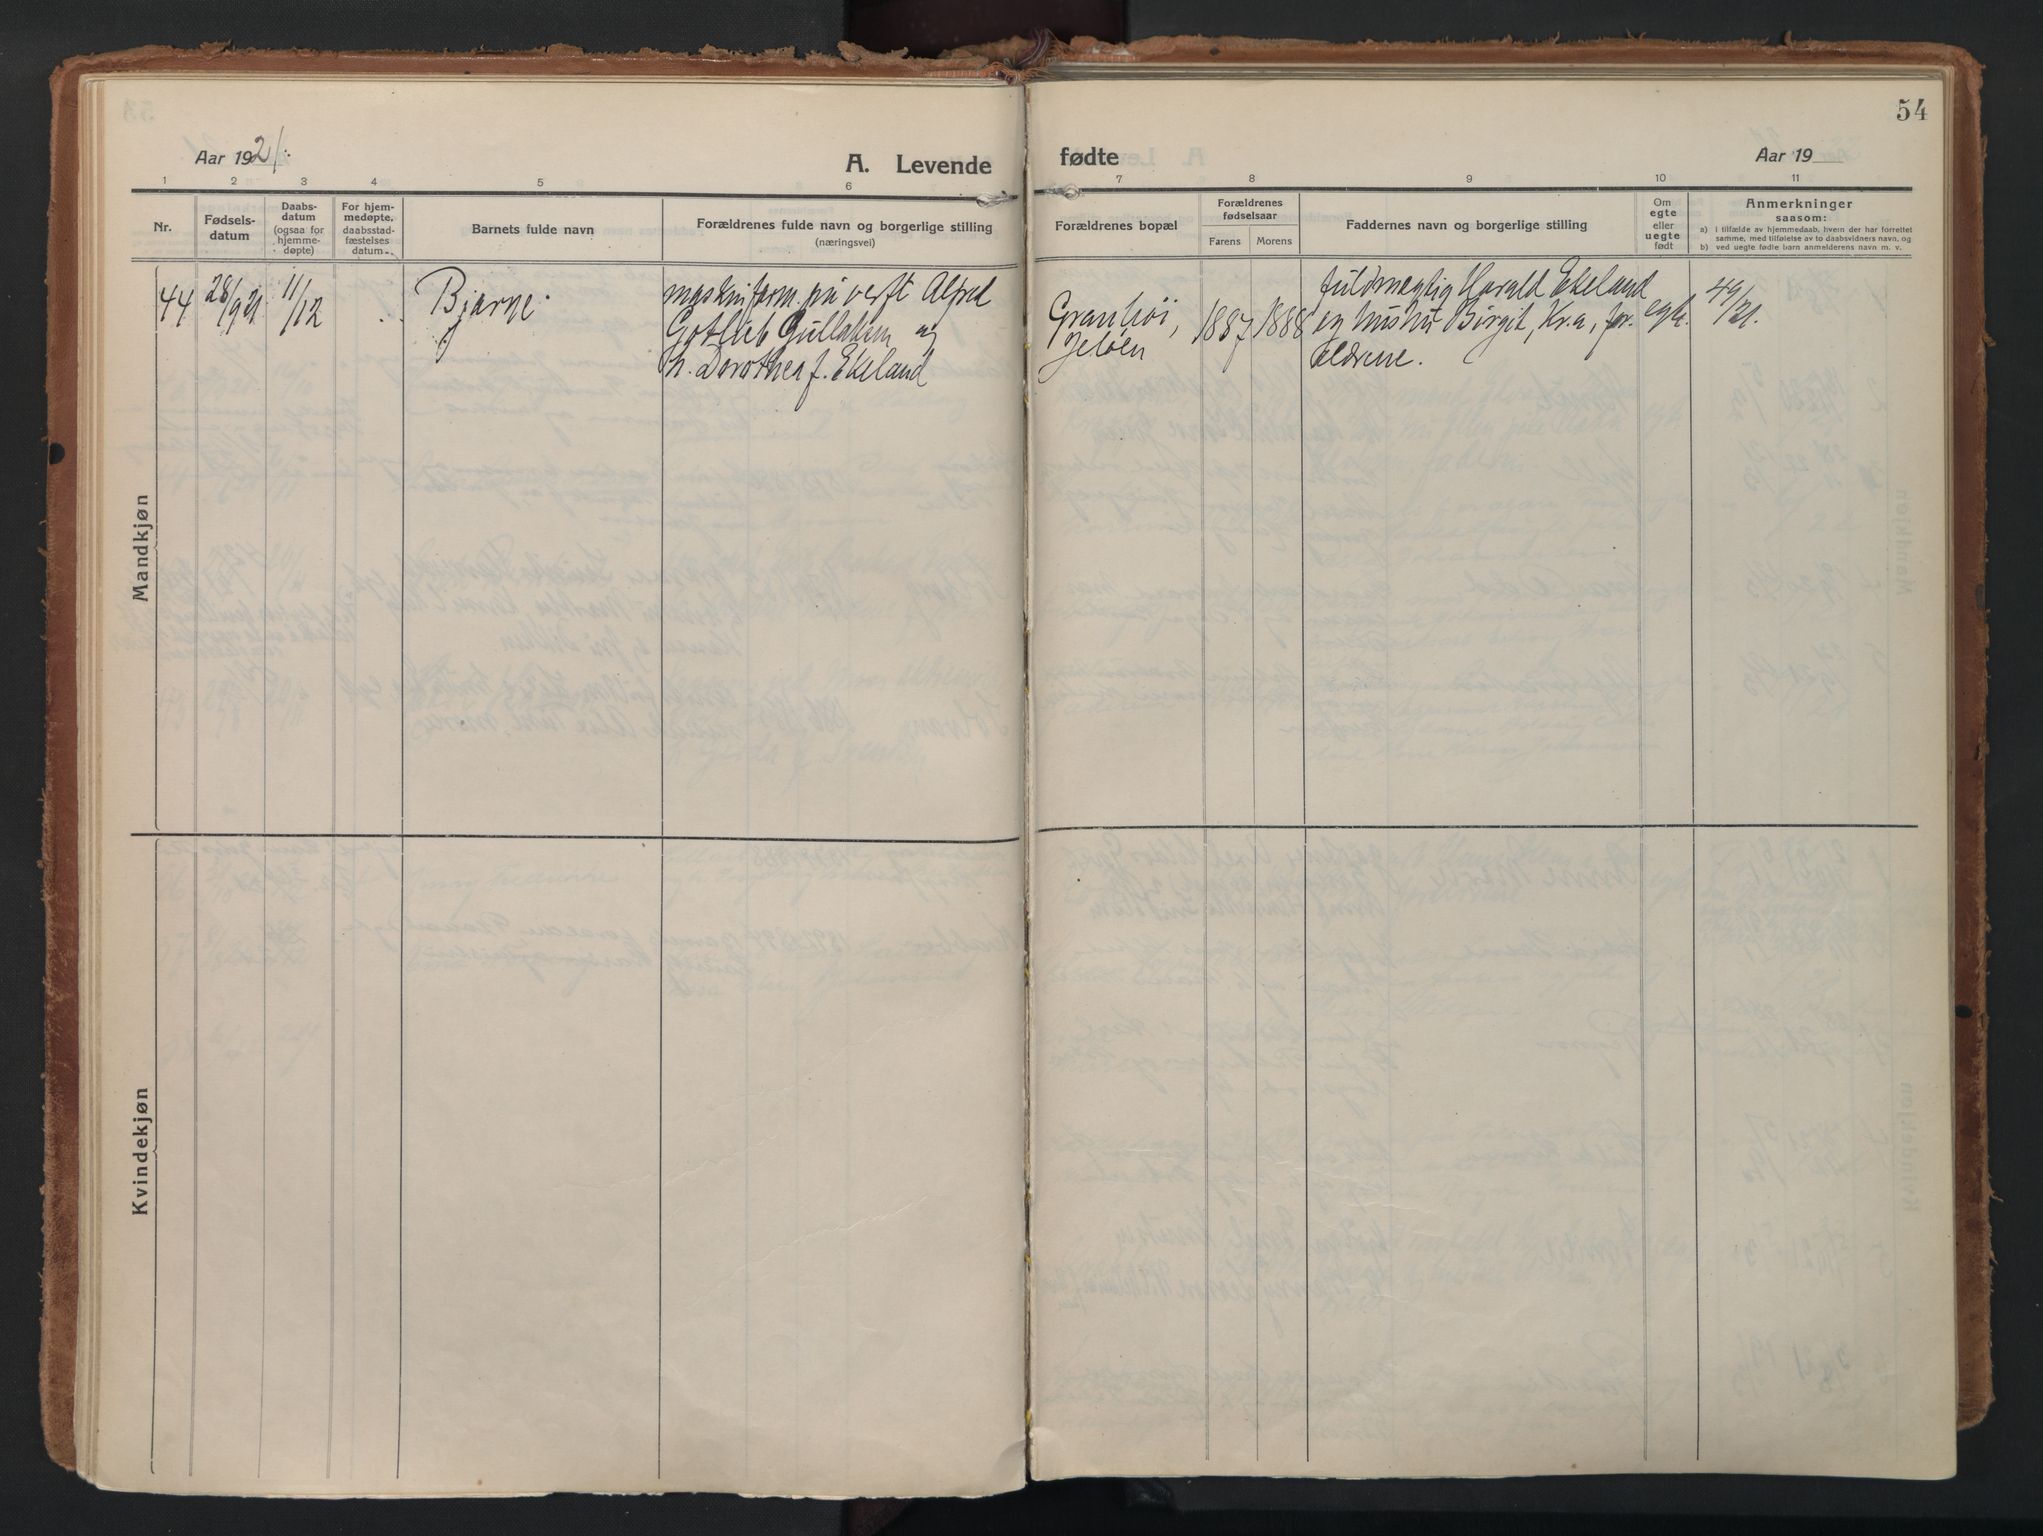 54
Aar 1921.
A. Levende
fødte
Aar 19
1 2 3 4 5 6 7 8 9 10 11
Nr.
Fødsels-
datum
Daabs-
datum
(ogsaa for
hjemme-
døpte)
For hjem-
medøpte,
daabsstad-
fæstelses
datum
Barnets fulde navn
Forældrenes fulde navn og borgerlige stilling
(næringsvei)
Forældrenes bopæl
Forældrenes
fødselsaar
Farens Morens
Faddernes navn og borgerlige stilling
Om
egte
eller
uegte
født
Anmerkninger
saasom:
a) I tilfælde av hjemmedaab, hvem der har forrettet
samme, med tilføielse av to daabsvidners navn, og
b) ved uegte fødte barn anmelderens navn m. v.
Mandkjøn
44
28/9 21
11/12
Bjarne
maskinform. på verft Alfred
Gotlieb Gullaksen og
h. Dorothea f. Ekeland
Granhøi,
Jeløen
1887 1888
fuldmegtig Harald Ekeland
og hustru Birgit, Kr.a, for-
ældrene.
egte.
49/21.
Kvindekjøn